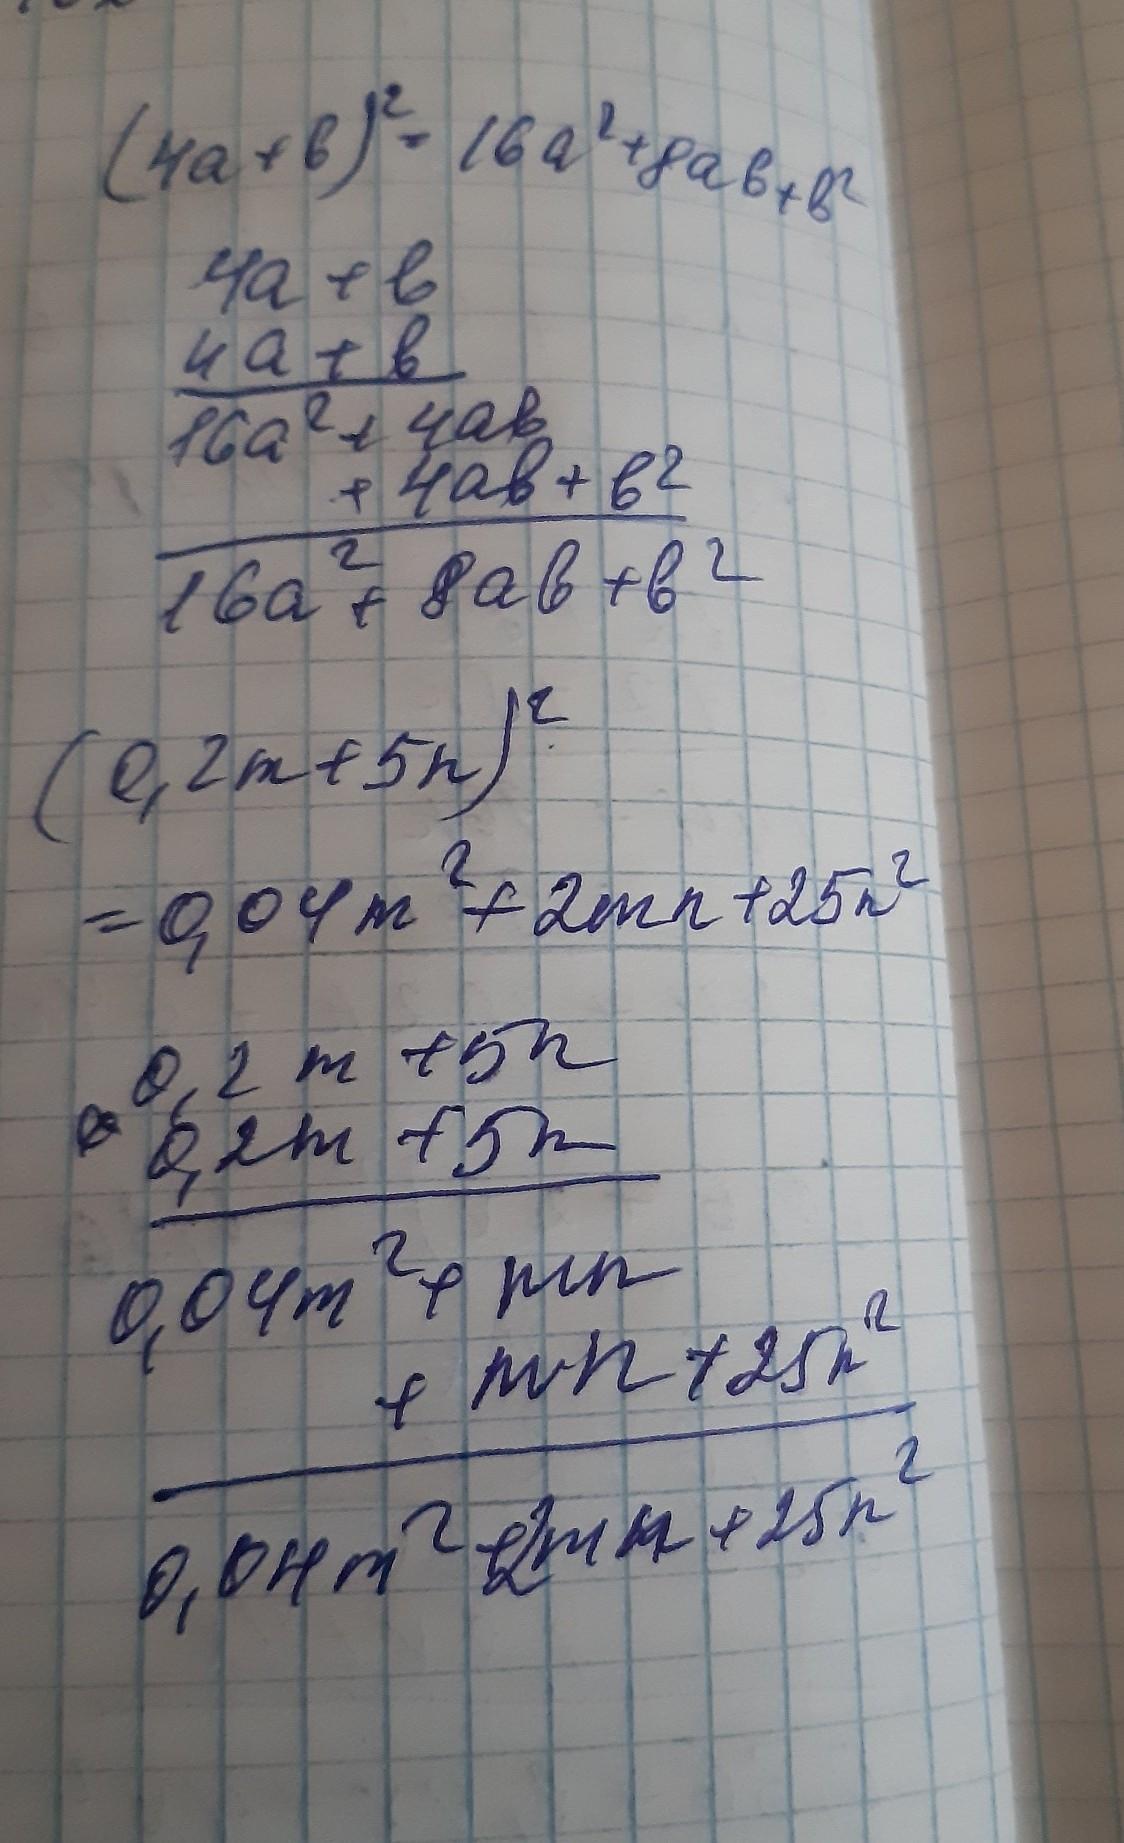 (4a+b)²= 16a²+8ab+b²
4a+b
4a+b
16a²+4ab
+4ab+b²
16a²+8ab+b²
(0,2m+5n)²
=0,04m²+2mn+25n²
0,2m+5n
0,2m+5n
0,04m²+mn
+mn+25n²
0,04m²+2mn+25n²